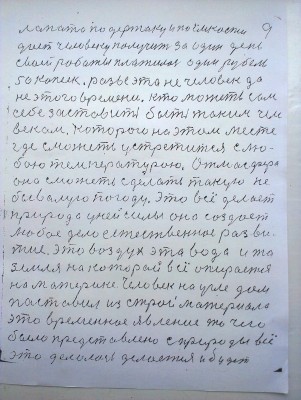 ломато по держаку и по ёмкости 9
дает человеку получит за один день
своей роботы платилось один рубель
50 копеек. разве эта не человек да
не этого времени. кто может сам
себе заставити быти таким чел
веком. Которого на этом месте
где сможет устретится с лю-
бою температурою. Отмасфера
она сможет сделать такую не
бывалую погоду. Это всё делает
природа у ней силы она создает
любое дело естественное разви-
тие. Это воздух эта вода и та
земля на которой всё опирается
на материке человек на угле дом
поставил из строй материала
это временное явление то чего
было представлено с природы всё
это делалось делается и будет